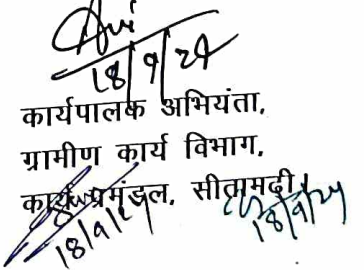 18/9/24
कार्यपालक अभियंता,
ग्रामीण कार्य विभाग,
कार्य प्रमंडल, सीतामढ़ी।
18/9/24
18/9/24